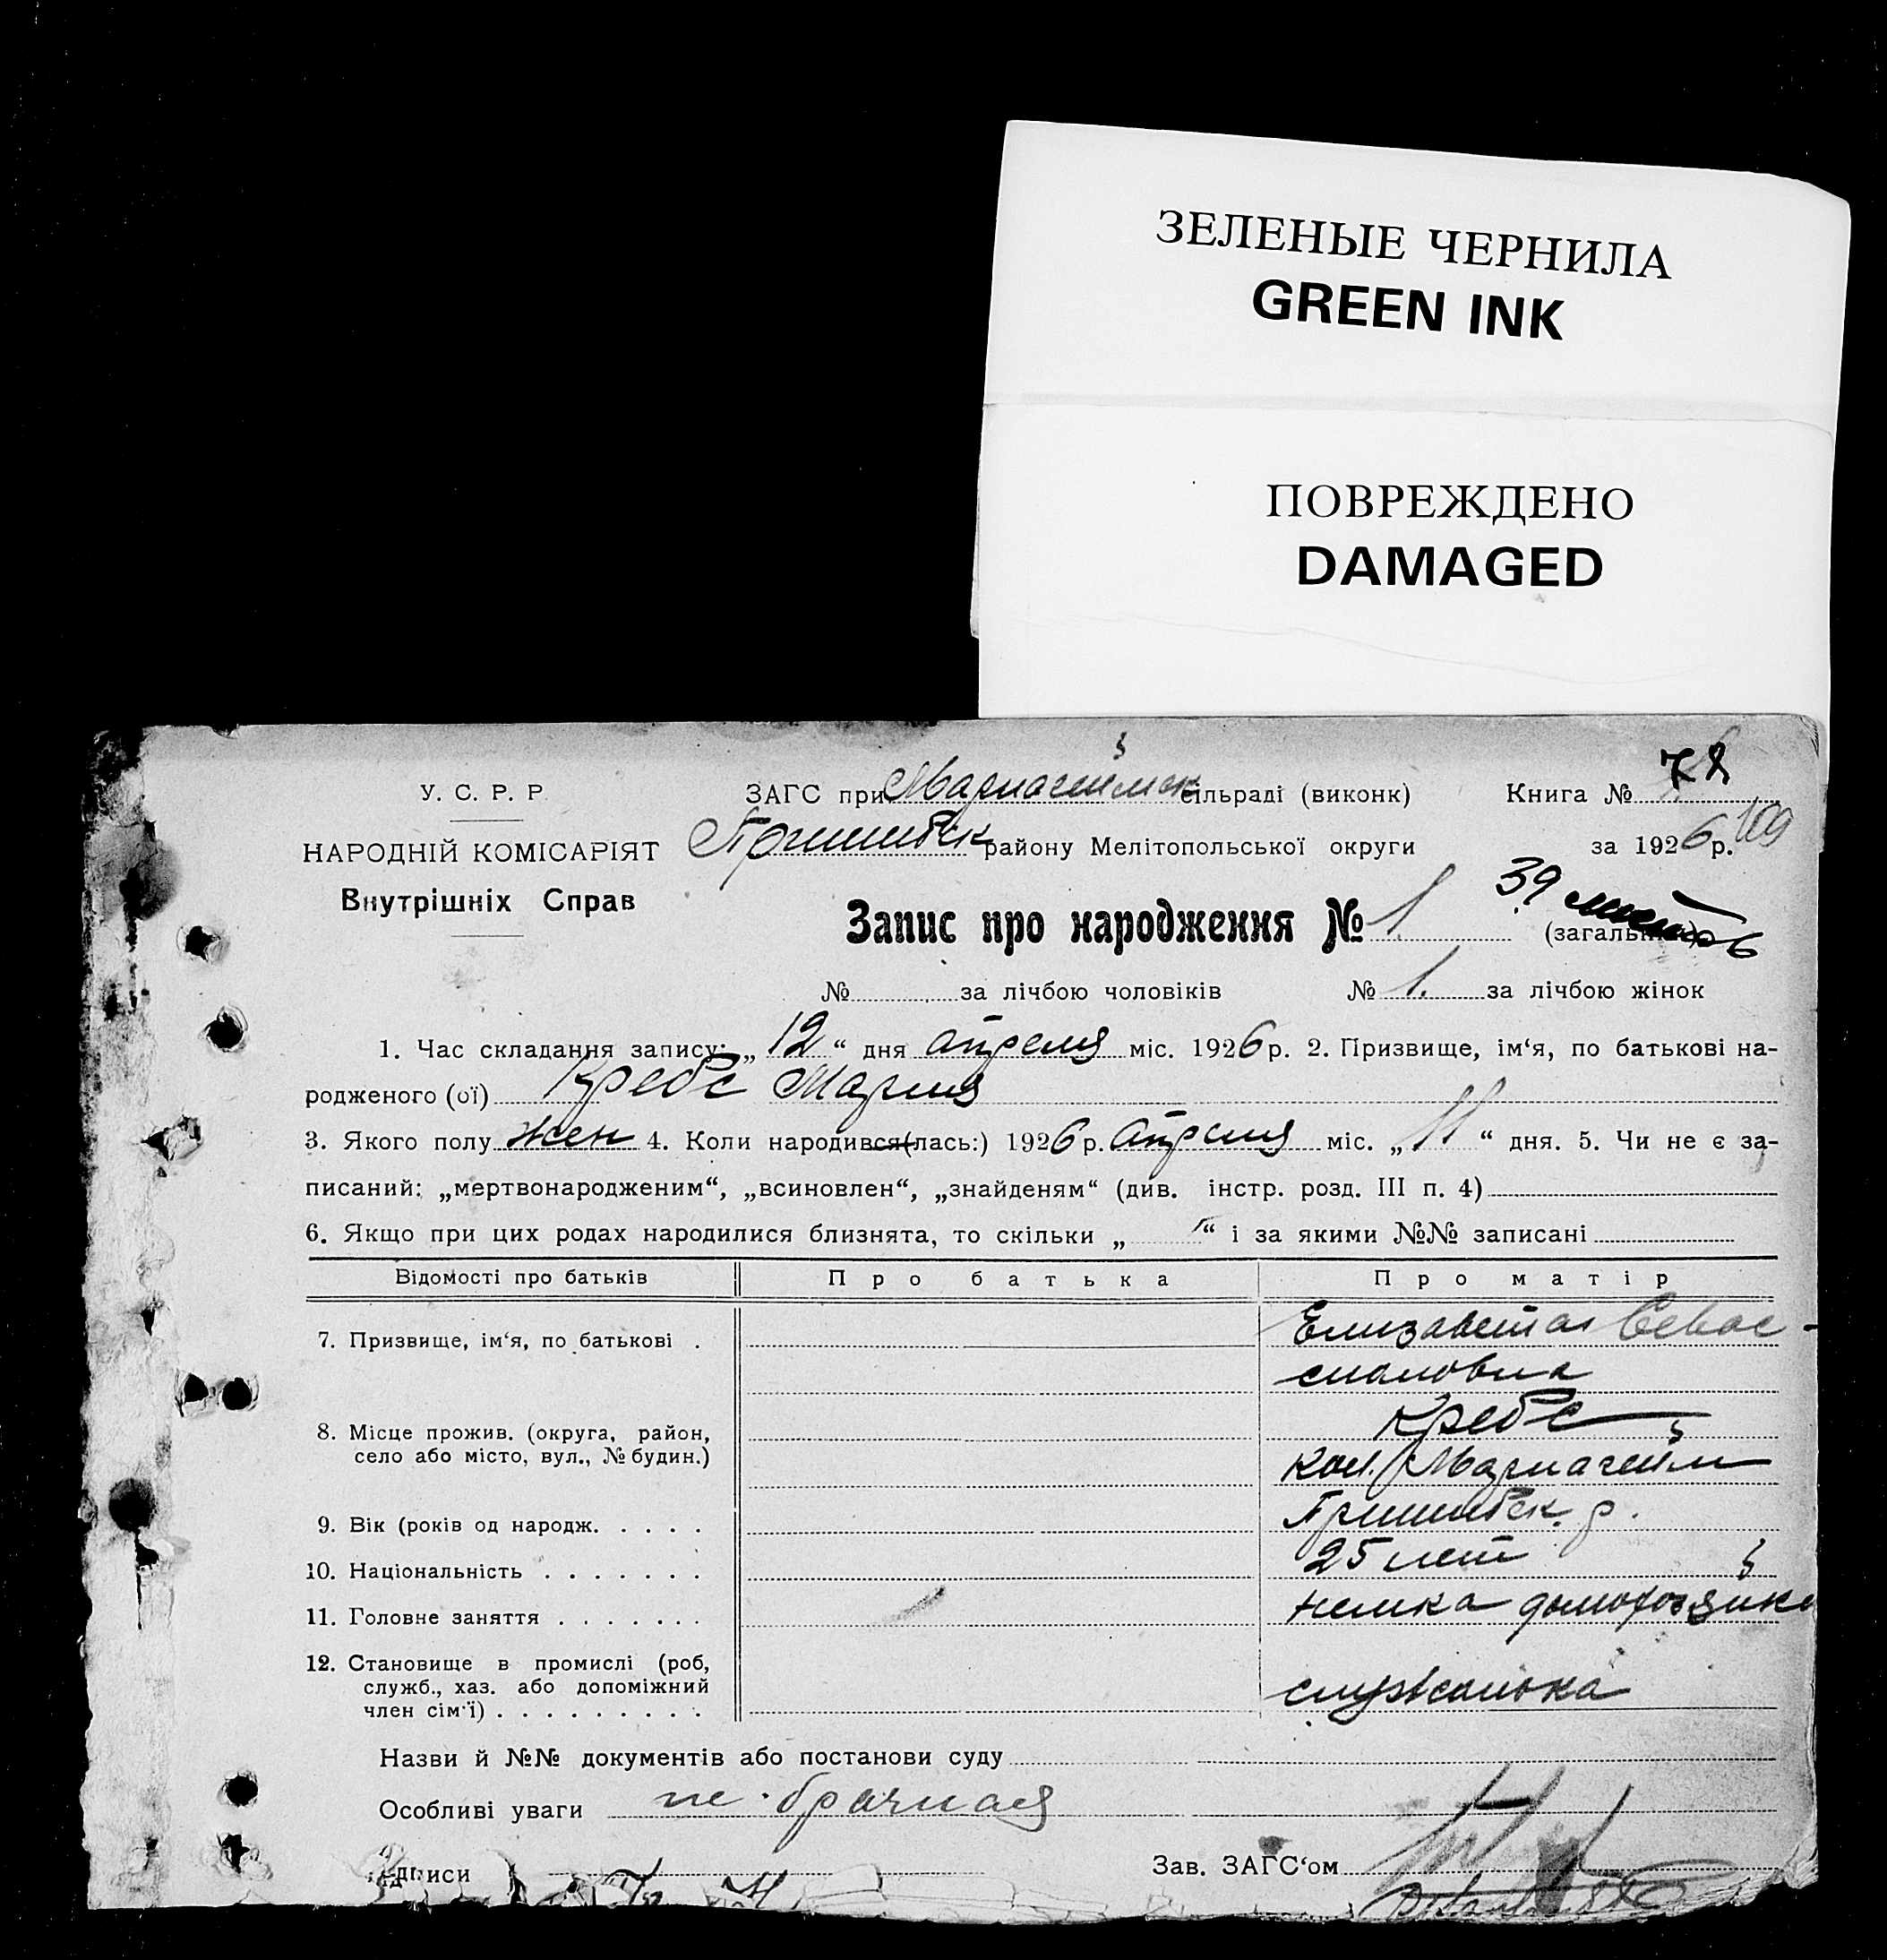 ЗЕЛЕНЫЕ ЧЕРНИЛА
GREEN INK
ПОВРЕЖДЕНО
DAMAGED
У. С. Р. Р.
НАРОДНІЙ КОМІСАРІЯТ
Внутрішніх Справ
ЗАГС при Мариагеймск сільраді (виконк)
Пришибск району Мелітопольської округи
Книга № 78
за 1926 р. 109
Запис про народження № 1 (загальний)
39 листов
№ за лічбою чоловіків № 1. за лічбою жінок
1. Час складання запису: „12“ дня апреля міс. 1926 р. 2. Призвище, ім‘я, по батькові на-
родженого (ої) Кребс Мария
3. Якого полу жен 4. Коли народився(лась:) 1926 р. апреля міс. „11“ дня. 5. Чи не є за-
писаний: „мертвонародженим“, „всиновлен“, „знайденям“ (див. інстр. розд. III п. 4)
6. Якщо при цих родах народилися близнята, то скільки „ “ і за якими №№ записані
Відомості про батьків Про батька Про матір
7. Призвище, ім‘я, по батькові . Елизавета Севас-
тиановна
Кребс
8. Місце прожив. (округа, район,
село або місто, вул., № будин.)
кол. Мариагейм
Пришибск. р.
9. Вік (років од народж. . . . . 25 лет
10. Національність . . . . . . .
11. Головне заняття . . . . . . . немка домохозяйка
12. Становище в промислі (роб,
служб., хаз. або допоміжний
член сім‘ї) . . . . . . . . .
служанка
Назви й №№ документів або постанови суду
Особливі уваги не брачная
Зав. ЗАГС‘ом